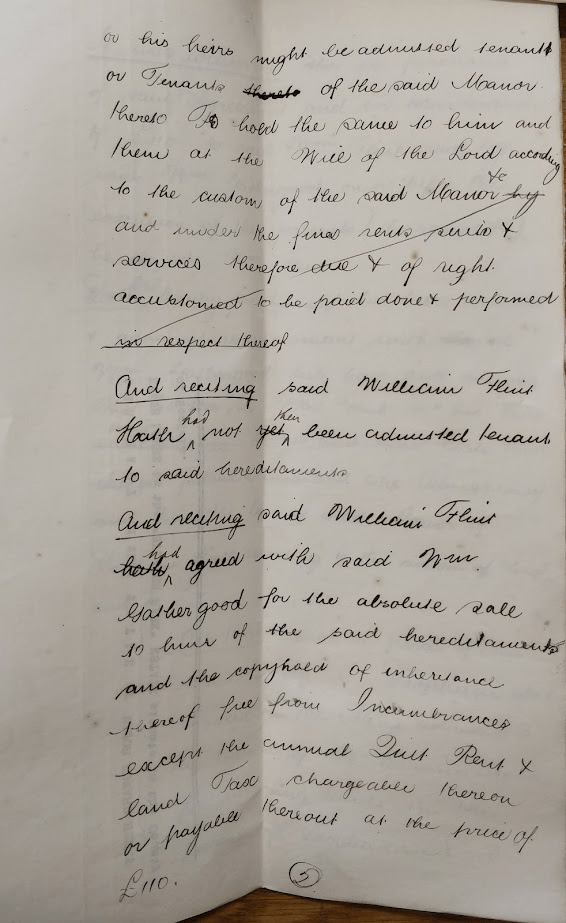 or his heirs might be admitted tenant
or Tenants thereto of the said Manor
thereto To hold the same to him and
them at the Will of the Lord according
to the custom of the said Manor &c by
and under the fines rents suits &
services therefore due & of right
accustomed to be paid done & performed
in respect thereof
And reciting said William Flint
Hath had not yet then been admitted tenant
to said hereditaments
And reciting said William Flint
hath had agreed with said Wm.
Gathergood for the absolute sale
to him of the said hereditaments
and the copyhold of inheritance
thereof free from Incumbrances
except the annual Quit Rent &
land Tax chargeable thereon
or payable thereout at the price of
£110.
5